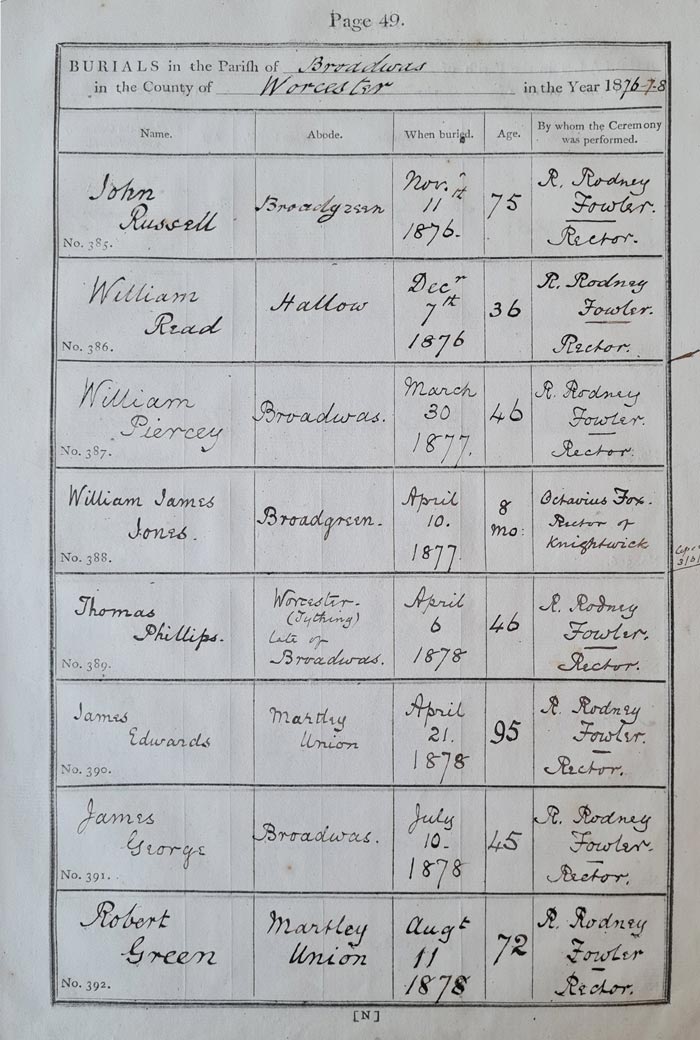 Page 49.
BURIALS in the Parish of Broadwas
in the County of Worcester in the Year 1876-7-8
Name. Abode. When buried. Age. By whom the Ceremony was performed.
John
Russell
No. 385.
Broadgreen
Nov. th
11
1876.
75
R. Rodney
Fowler.
Rector.
William
Read
No. 386.
Hallow
Decr
7th
1876
36
R. Rodney
Fowler.
Rector.
William
Piercey
No. 387.
Broadwas.
March
30
1877.
46
R. Rodney
Fowler.
Rector.
William James
Jones.
No. 388.
Broadgreen.
April
10.
1877
8
mo:
Octavius Fox.
Rector of
Knightwick
Thomas
Phillips.
No. 389.
Worcester-
(Tything)
late of
Broadwas.
April
6
1878
46
R. Rodney
Fowler.
Rector.
James
Edwards
No. 390.
Martley
Union
April
21.
1878
95
R. Rodney
Fowler.
Rector.
James
George
No. 391.
Broadwas.
July
10-
1878
45
R. Rodney
Fowler.
Rector.
Robert
Green
No. 392.
Martley
Union
Augt
11
1878
72
R. Rodney
Fowler
Rector.
[N]